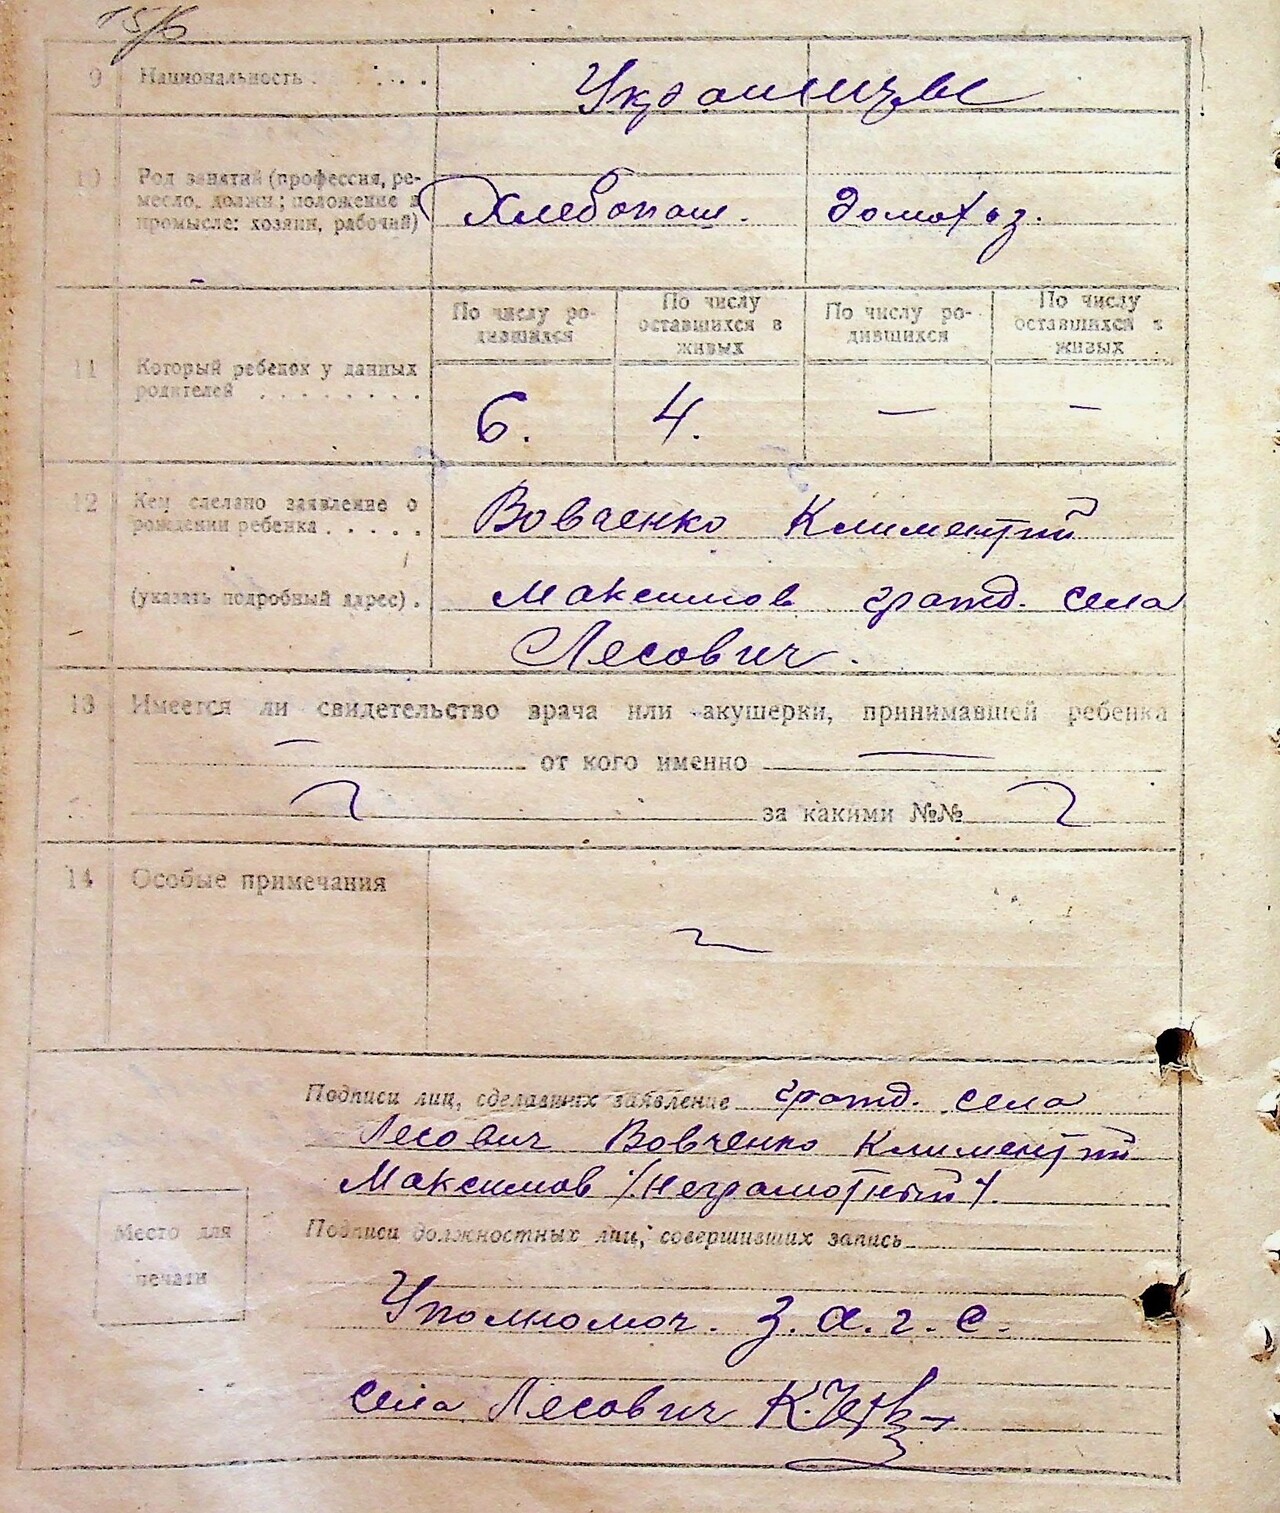 15/6
9 Национальность . . . . . Украинцы
10 Род занятий (профессия, ре-
месло, должн.; положение в
промысле: хозяин, рабочий)
Хлебопаш. домохоз.
По числу ро-
дившихся
По числу
оставшихся в
живых
По числу ро-
дившихся
По числу
оставшихся в
живых
11 Который ребенок у данных
родителей . . . . . . . .
6. 4. — —
12 Кем сделано заявление о
рождении ребенка . . . . .
(указать подробный адрес) .
Вовченко Климентий
Максимов гражд. села
Лесович.
13 Имеется ли свидетельство врача или акушерки, принимавшей ребенка
— от кого именно —
за какими №№
14 Особые примечания
Подписи лиц, сделавших заявление гражд. села
Лесович Вовченко Климентий
Максимов /неграмотный/.
Место для
печати
Подписи должностных лиц, совершивших запись
Уполномоч. З. а. г. с.
села Лесович К.